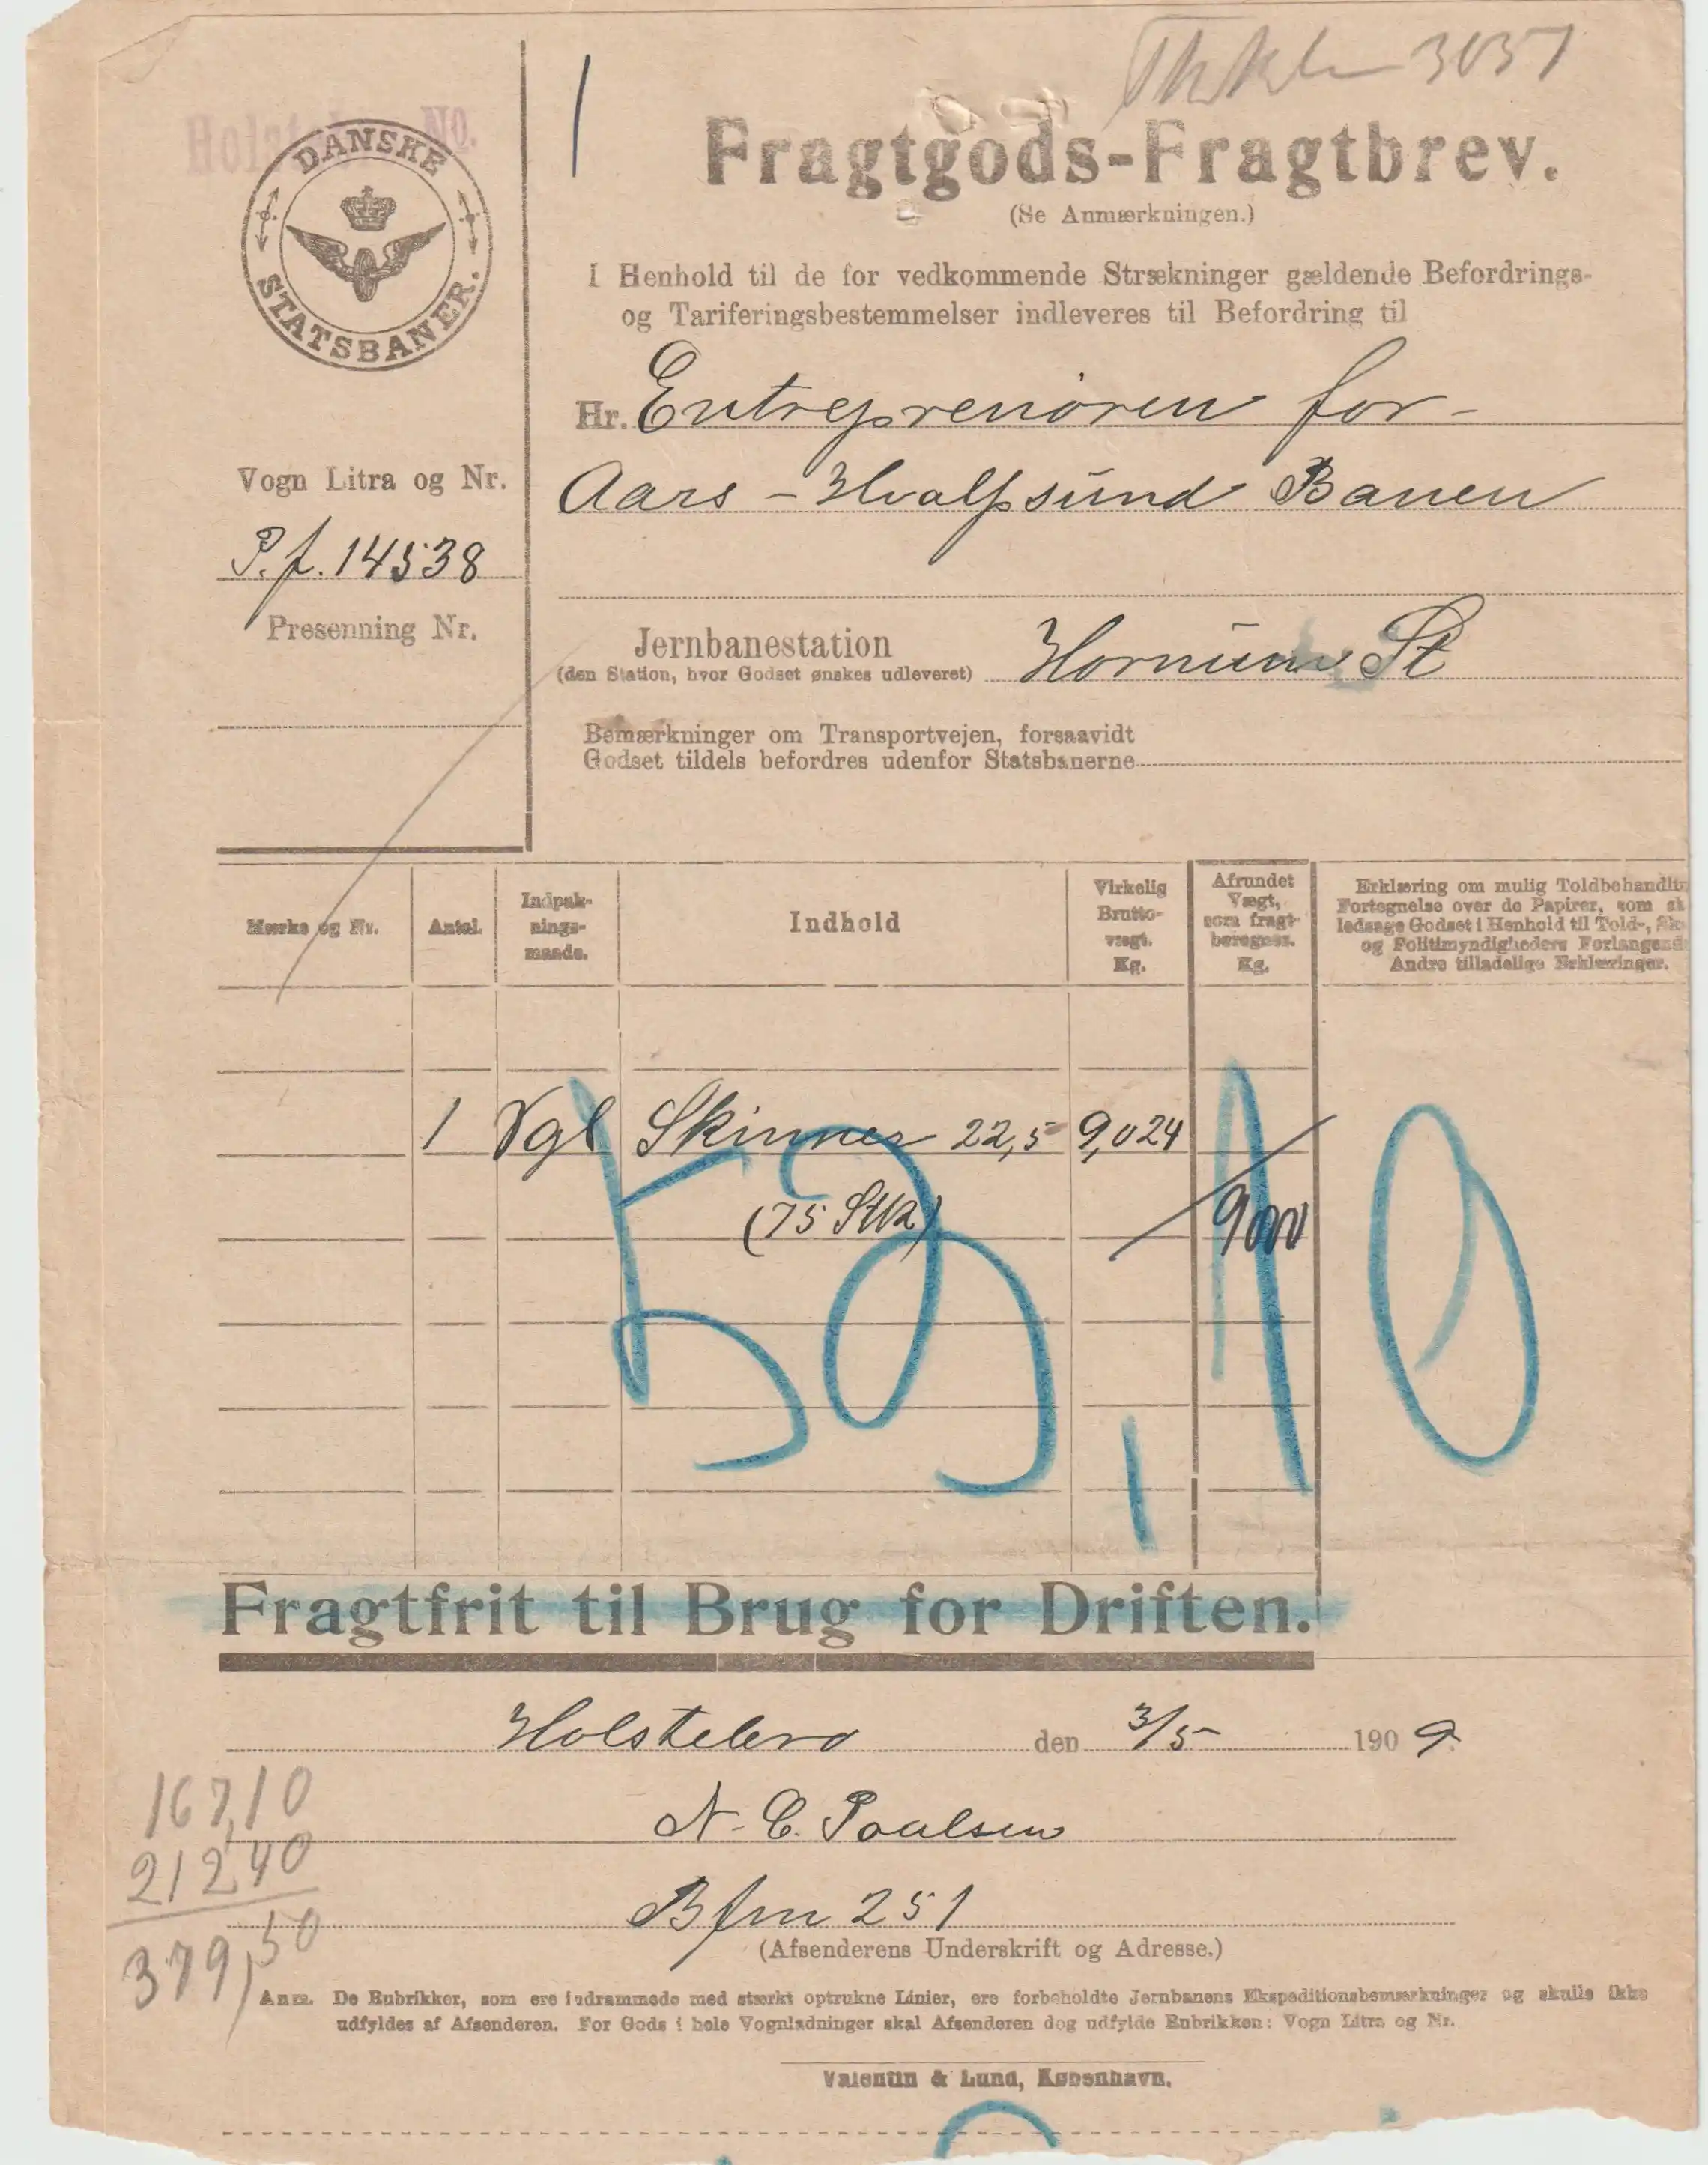 3051
No.
DANSKE
STATSBANER.
Fragtgods-Fragtbrev.
(Se Anmærkningen.)
I Henhold til de for vedkommende Strækninger gældende Befordrings-
og Tariferingsbestemmelser indleveres til Befordring til
Hr. Entreprenøren for
Aars - Hvalpsund Banen
Vogn Litra og Nr.
P.f. 14538
Presenning Nr.
Jernbanestation
(den Station, hvor Godset ønskes udleveret) Hornum St
Bemærkninger om Transportvejen, forsaavidt
Godset tildels befordres udenfor Statsbanerne
Mærke og Nr.
Antal.
Indpak-
nings-
maade.
Indhold
Virkelig
Brutto-
vægt.
Kg.
Afrundet
Vægt,
som fragt-
beregnes.
Kg.
Erklæring om mulig Toldbehandlin
Fortegnelse over de Papirer, som sk
ledsage Godset i Henhold til Told-, Sk
og Politimyndigheders Forlangend
Andre tilladelige Erklæringer.
1 Vgl Skinner 22,5 9,024
(75 Stk) 9000
59,10
Fragtfrit til Brug for Driften.
Holstebro den 3/5 1909.
N. C. Poulsen
Bfm 251
(Afsenderens Underskrift og Adresse.)
167,10
212,40
379,50
Anm. De Rubrikker, som ere indrammede med stærkt optrukne Linier, ere forbeholdte Jernbanens Ekspeditionsbemærkninger og skulle ikke
udfyldes af Afsenderen. For Gods i hele Vognladninger skal Afsenderen dog udfylde Rubrikken: Vogn Litra og Nr.
Valentin & Lund, København.